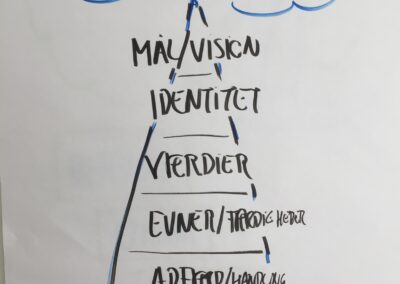 MÅL/VISION
IDENTITET
VÆRDIER
EVNER/FÆRDIGHEDER
ADFÆRD/HANDLING